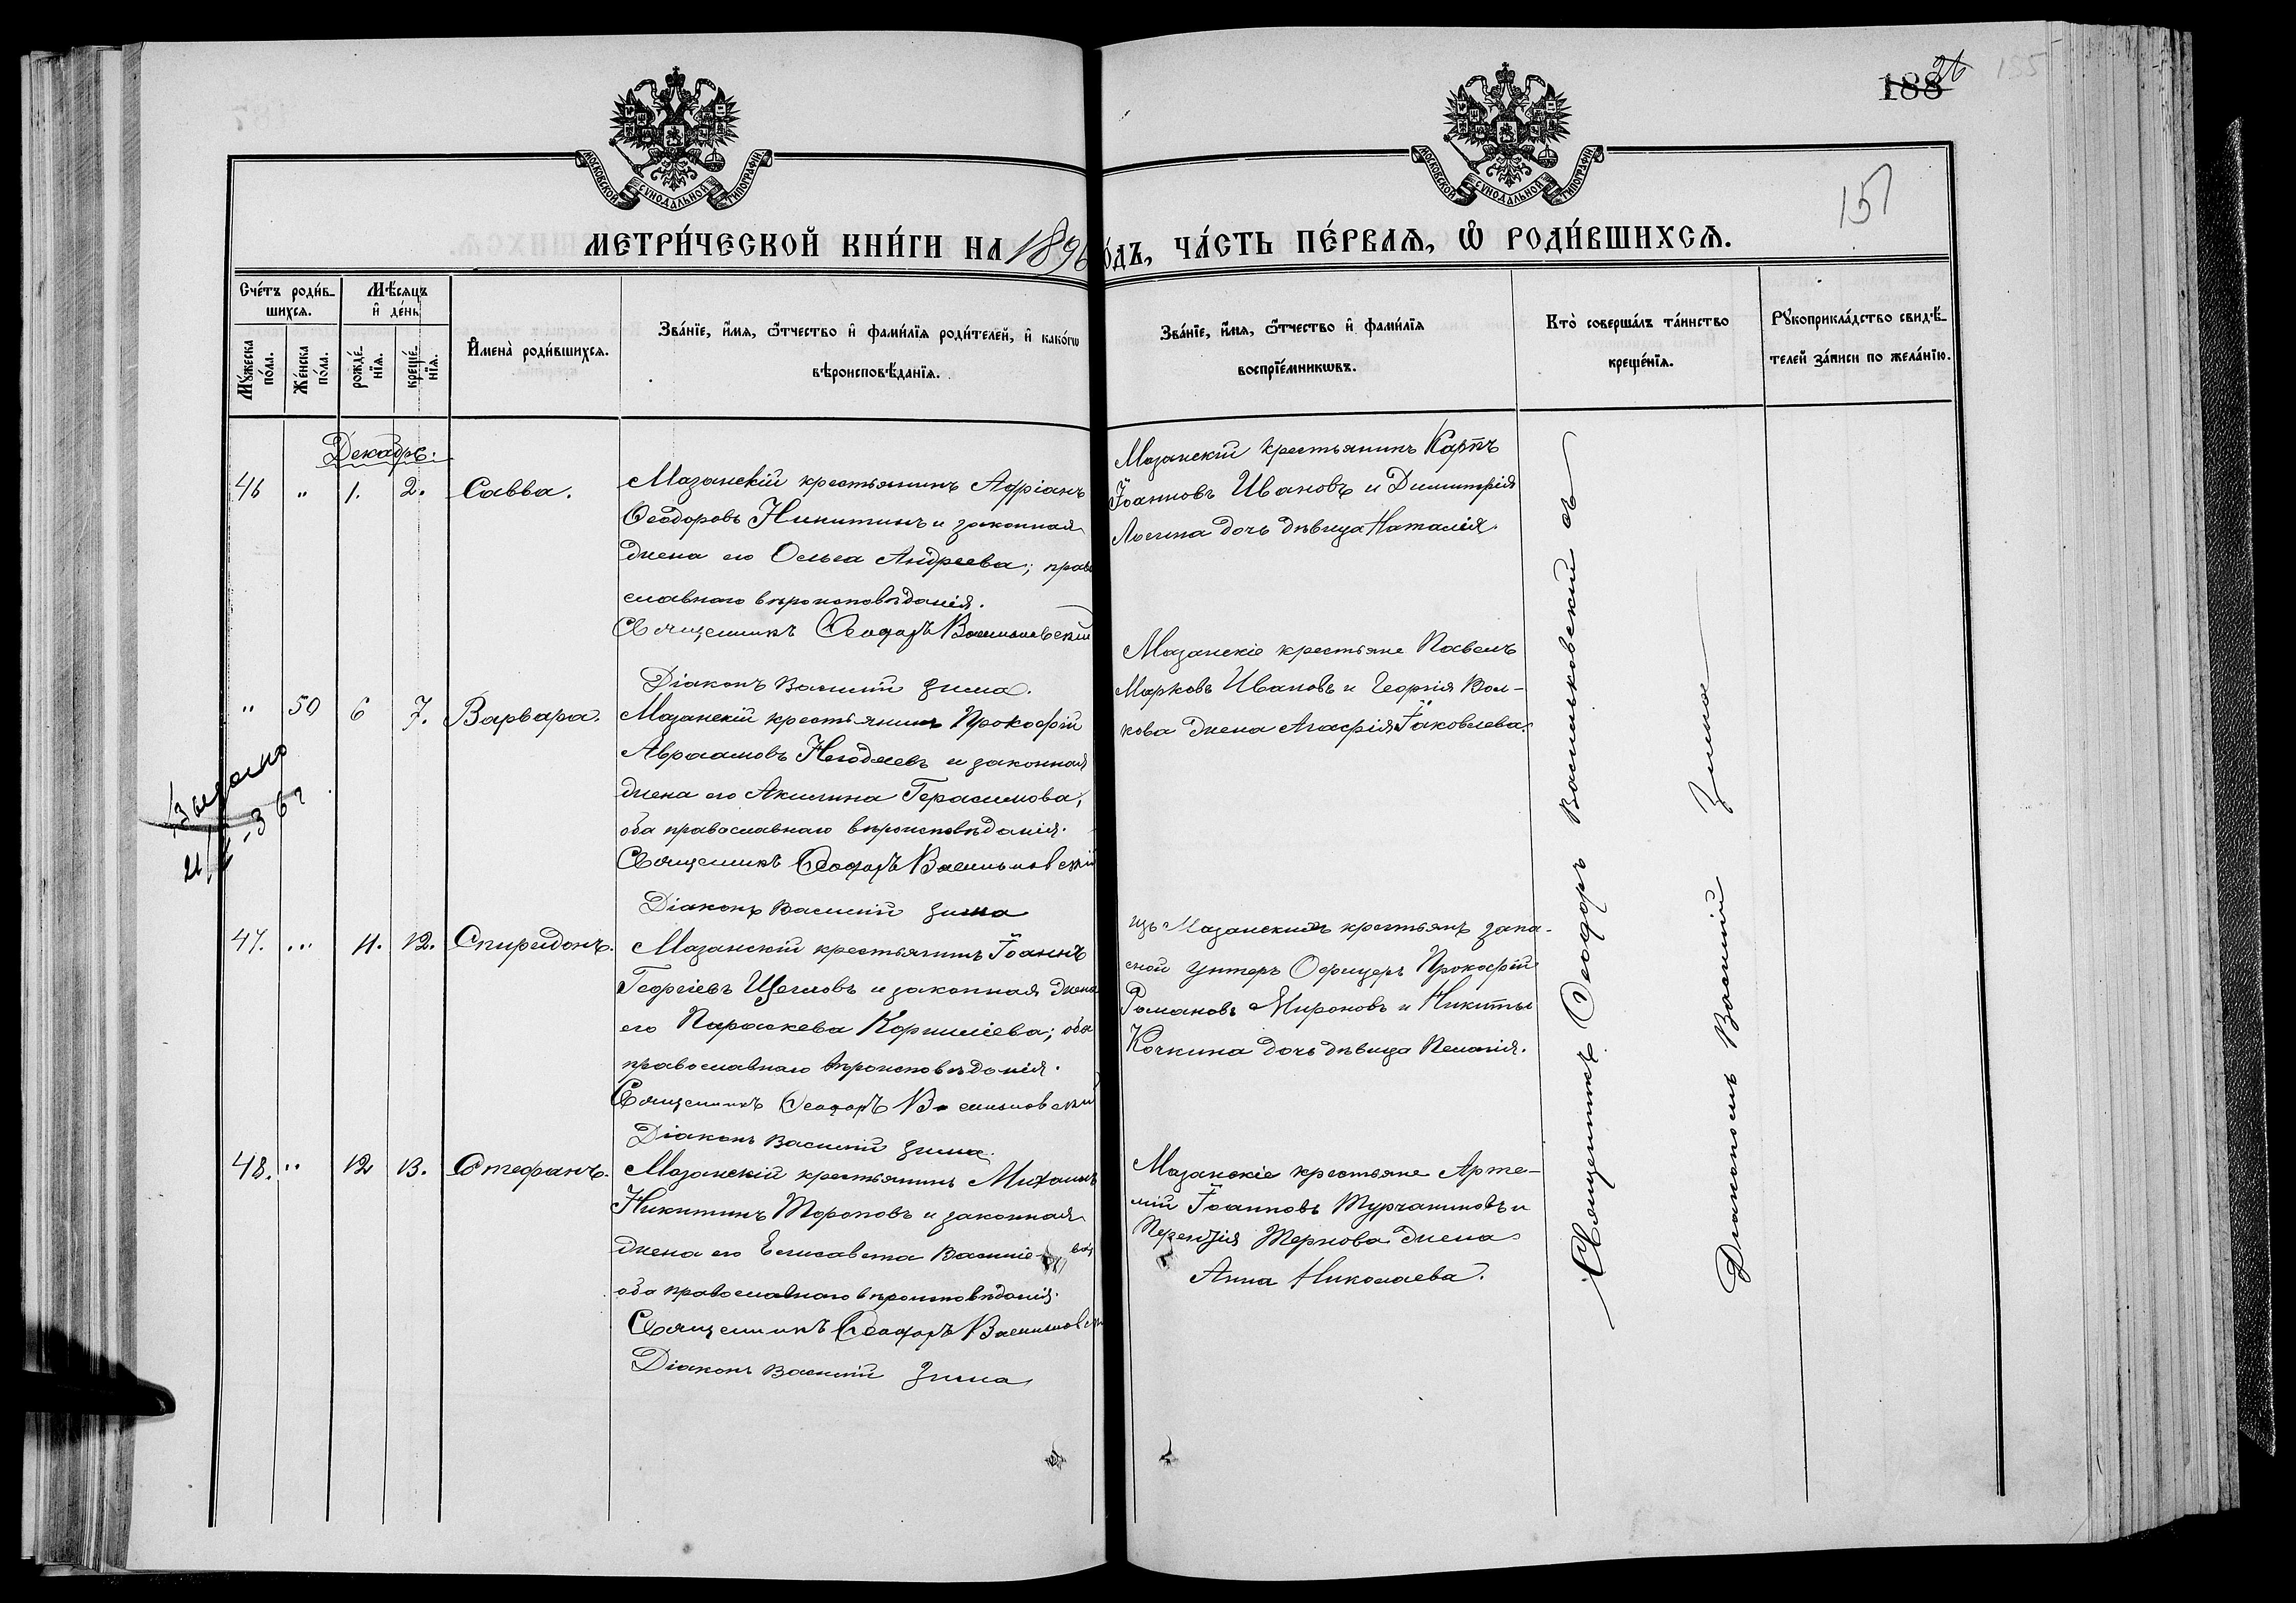 МОСКОВСКОЙ СѴНОДАЛЬНОЙ ТИПОГРАФІИ
МОСКОВСКОЙ СѴНОДАЛЬНОЙ ТИПОГРАФІИ
188
26
155
151
МЕТРИ́ЧЕСКОЙ КНИ́ГИ НА 1896 ГО́ДЪ, ЧА́СТЬ ПЕ́РВАѦ, Ѡ҆ РОДИ́ВШИХСѦ.
Сче́тъ роди́в-
шихсѧ.
Мꙋ́жеска
по́ла.
Же́нска
по́ла.
Мѣ́сѧцъ
и҆ де́нь
рожде́-
нїѧ.
креще́-
нїѧ.
И҆мена̀ роди́вшихсѧ.
Зва́нїе, и҆́мѧ, ѻ҆́тчество и҆ фами́лїѧ роди́телей, и҆ како́гѡ
вѣроисповѣ́данїѧ.
Зва́нїе, и҆́мѧ, ѻ҆́тчество и҆ фами́лїѧ
воспрїе́мникѡвъ.
Кто̀ соверша́лъ та́инство
креще́нїѧ.
Рꙋкоприкла́дство свидѣ́-
телей за́писи по жела́нїю.
Декабрь.
46 " 1. 2. Савва.
Мазанскій крестьянинъ Адріанъ
Ѳеодоровъ Никитинъ и законная
жена его Ольга Андреева; право
славнаго вѣроисповѣданія.
Священникъ Ѳеодоръ Васильковскій
Діаконъ Василій Зима.
Мазанскій крестьянинъ Карпъ
Іоанновъ Ивановъ и Димитрія
Лосина дочь дѣвица Наталія.
" 50 6 7. Варвара.
Мазанскій крестьянинъ Прокофій
Авраамовъ Негодяевъ и законная
жена его Акилина Герасимова,
оба православнаго вѣроисповѣданія.
Священникъ Ѳеодоръ Васильковскій
Діаконъ Василій Зима
Мазанскіе крестьяне Павелъ
Марковъ Ивановъ и Георгія Вол-
кова жена Агафія Іаковлева.
Выдано
47. " 11. 12. Спиридонъ.
Мазанскій крестьянинъ Іоаннъ
Георгіевъ Щегловъ и законная жена
его Параскева Корниліева; оба
православнаго вѣроисповѣданія.
Священникъ Ѳеодоръ Васильковскій
Діаконъ Василій Зима.
изъ Мазанскихъ крестьянъ запа-
сной Унтеръ Офицеръ Прокофій
Романовъ Мироновъ и Никиты
Кочкина дочь дѣвица Пелагія.
48. " 12 13. Стефанъ.
Мазанскій крестьянинъ Михаилъ
Никитинъ Тороповъ и законная
жена его Елисавета Василіева
оба православнаго вѣроисповѣданія.
Священникъ Ѳеодоръ Васильковскій
Діаконъ Василій Зима
Мазанскіе крестьяне Арте-
мій Іоанновъ Турчаниновъ и
Тернова жена
Анна Николаева.
Священникъ Ѳеодоръ Васильковскій съ
Діакономъ Василій Зимою